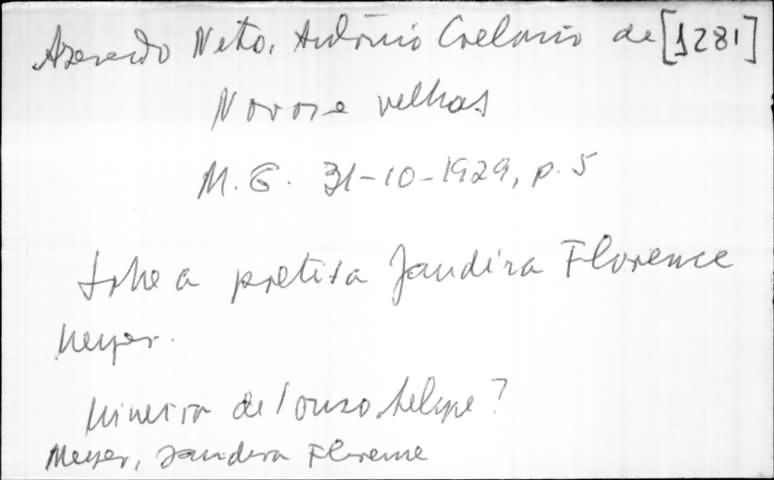 Azevedo Neto, Antônio Coelario de [1281]
Novos e velhas
M. G. 31-10-1929, p. 5
Sobre a poetisa Jandira Florence
Meyer.
Mineira de Pouso Alegre?
Meyer, Jandira Florence